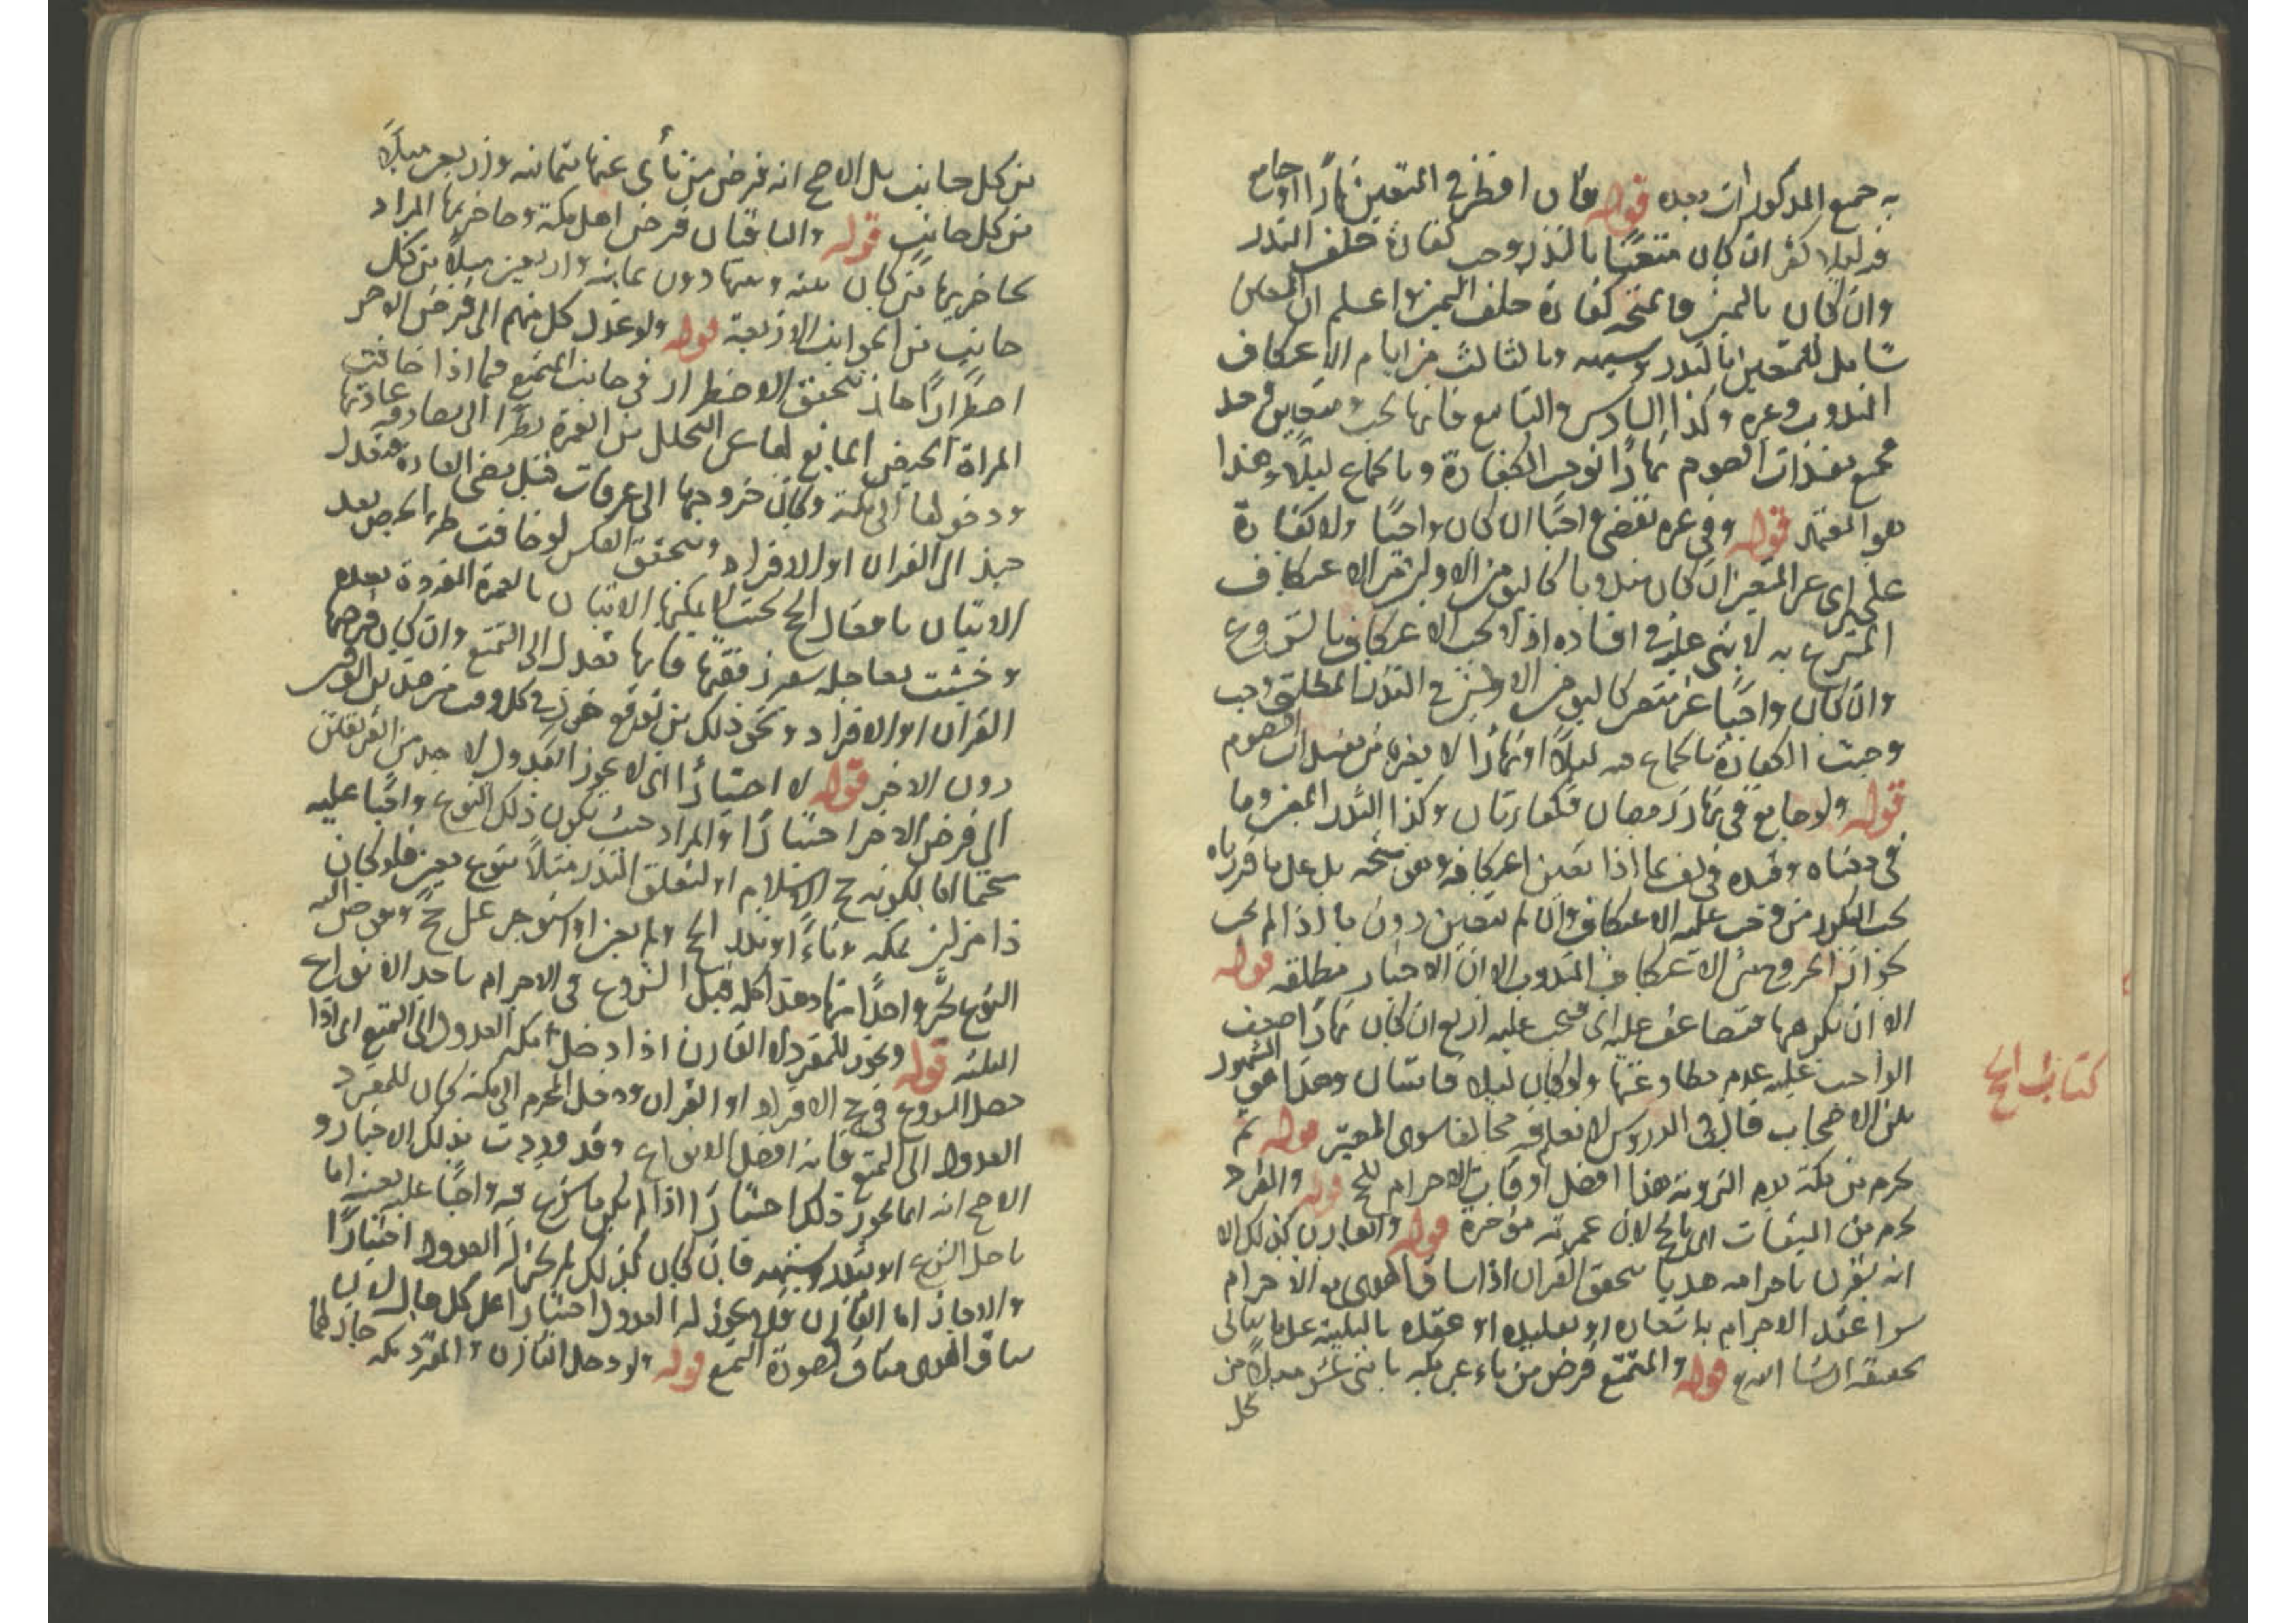 به جميع المذكورات بعده قوله فان افطر في المتعين نهارًا او جامع
فيه ليلا كفر ان كان متعينًا بالنذر وجب كفارة خلف النذر
وان كان باليمين كفارة خلف اليمين واعلم ان المعين
شامل للمتعين بالنذر وشبهه وبالثالث من ايام الاعتكاف
المندوب وغيره وكذا السادس والتاسع فانها تجب وتتعين
مفسدات الصوم نهارًا توجب الكفارة وبالجماع ليلاً وهذا
هو المعتمد قوله وفي غيره يقضي واجبًا ان كان واجبًا ولا كفارة
اي غير المتعين ان كان مندوبا كاليومين الاولين من الاعتكاف
المتبرع به لا شئ عليه في افساده اذ لا يجب الاعتكاف بالشروع
وان كان واجبًا غير متعين كاليومين الاولين في النذر المطلق وجب
وجبت الكفارة بالجماع فيه ليلاً او نهارًا لا بغيره من مفسدات الصوم
قوله ولو جامع في نهار رمضان فكفارتان وكذا النذر المعين وما
في معناه وقيده في بما اذا تعين اعتكافه وهو متجه بل على ما قررناه
من وجب عليه الاعتكاف وان لم يتعين دون ما اذا لم يجب
لجواز الخروج من الاعتكاف المندوب الا ان الاخبار مطلقة قوله
الا ان يكرهها فتضاعف عليه اي فيجب عليه اربع ان كان نهارًا
الواجب عليه عدم مطاوعتها ولو كان ليلا فاثنتان وهذا هو المشهور
بين الاصحاب قال في الدروس لا نعلم فيه مخالفا سوى المعتبر قوله ثم
يحرم من مكة يوم التروية هذا افضل اوقات الاحرام للحج قوله والمفرد
يحرم من الميقات بالحج لان عمرته مؤخرة قوله والقارن كذلك الا
انه يقرن باحرامه هديا يتحقق القران اذا ساق الهدي مع الاحرام
سوا عقد الاحرام باشعاره او تقليده او عقده بالتلبية على ما ياتي
تحقيقه ان شا الله قوله والمتمتع فرض من ناء عن مكة باثني عشر ميلاً من
كل
كتاب الحج
من كل جانب بل الاصح انه فرض من نأى عنها بثمانية واربعين ميلاً
من كل جانب قوله والباقيان فرض اهل مكة وحاضريها المراد
بحاضريها من كان بينه وبينها دون ثمانية واربعين ميلاً من كل
جانب من الجوانب الاربعة قوله ولو عدل كل منهم الى فرض الاخر
اضطرارًا جاز يتحقق الاضطرار في جانب المتمتع فيما اذا خافت
المراة الحيض المانع لها عن التحلل من العمرة نظرًا الى عادتها
ودخولها الى مكة وكان خروجها الى عرفات قبل مضي العادة فتعدل
حينئذ الى القران او الافراد ويتحقق العكس لو خافت طرء الحيض بعد
الاتيان بافعال الحج بحيث لا يمكنها الاتيان بالعمرة المفردة بعده
وخشيت معاجلة سفر رفقتها فانها تعدل الى التمتع وان كان فرضها
القران او الافراد ونحو ذلك من توقع خوف في كل وقت من هذين الوقتين
دون الاخر قوله لا اختيارًا اي لا يجوز العدول لاحد من الفريقين
الى فرض الاخر اختيارًا والمراد حيث يكون ذلك النوع واجبًا عليه
متحتما اما لكونه حج الاسلام او لتعلق النذر مثلاً بنوع معين فلو كان
ذا منزلين بمكة وناءً او نذر الحج ولم يعين او استوجر على حج وفوض اليه
النوع تخير واحدًا منها وهذا كله قبل الشروع في الاحرام باحد الانواع
الثلثة قوله ويجوز للمفرد لا القارن اذا دخل مكة العدول الى التمتع اي اذا
حصل الشروع في حج الافراد او القران ودخل المحرم الى مكة كان للمفرد
العدول الى التمتع فانه افضل الانواع وقد وردت بذلك الاخبار و
الاصح انه انما يجوز ذلك اختيارًا اذا لم يكن ما شرع فيه واجبًا عليه بعينه اما
باصل الشرع او بنذر وشبهه فان كان كذلك لم يجز له العدول اختيارًا
والا جاز اما القارن فلا يجوز له العدول اختيارا على كل حال لان
سياق الهدي مناف لصورة التمتع قوله ولو دخل القارن والمفرد مكة جاز لهما